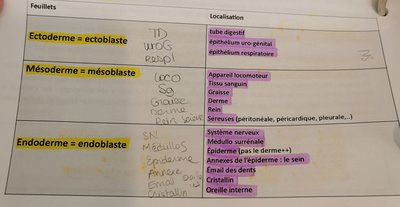 Feuillets
Localisation
Ectoderme = ectoblaste
TD
UroG
Respi
tube digestif
épithélium uro génital
épithélium respiratoire
Mésoderme = mésoblaste
Loco
Sg
Graisse
Derme
Rein
Appareil locomoteur
Tissu sanguin
Graisse
Derme
Rein
Séreuses (péritonéale, péricardique, pleurale,..)
Endoderme = endoblaste
SN
MédulloS
Epiderme
Annexe
Email
Cristallin
Système nerveux
Médullo surrénale
Épiderme (pas le derme++)
Annexes de l'épiderme : le sein
Émail des dents
Cristallin
Oreille interne